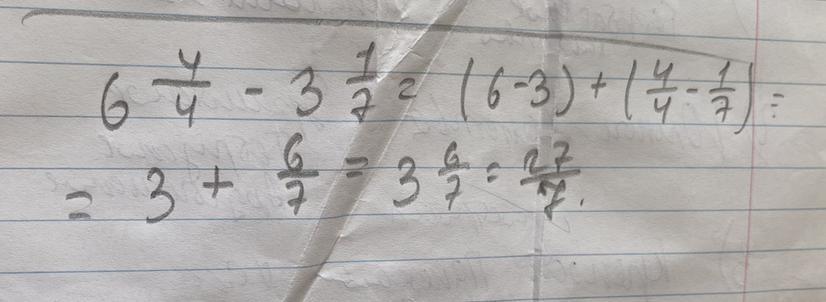 6 4/4 - 3 1/7 = (6-3) + (4/4 - 1/7) =
= 3 + 6/7 = 3 6/7 = 27/7.